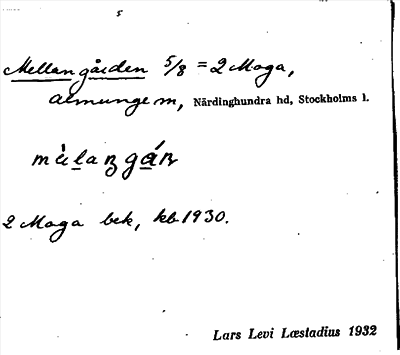 5
Mellangården 5/8 = 2 Moga,
Almunge sn, Närdinghundra hd, Stockholms l.
2 Moga bek, kb 1930.
Lars Levi Læstadius 1932